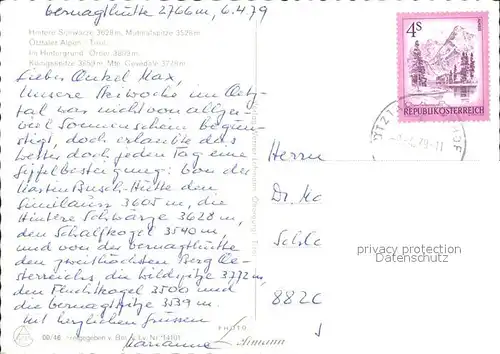 Vernagthütte 2766m, 6.4.79
Hintere Schwärze 3628 m, Mutmalspitze 3528m
Ötztaler Alpen - Tirol
Im Hintergrund: Ortler 3899m,
Königsspitze 3859m Mte. Cevedale 3778m
Lieber Onkel Max,
Unsere Skiwoche im Oetz-
tal war nicht von allzu-
viel Sonnenschein begün-
stigt, doch erlaubte das
Wetter doch jeden Tag eine
Gipfelbesteigung: von der
Martin-Busch-Hütte den
Similaun 3605 m, die
Hintere Schwärze 3628 m,
den Schalfkogel 3540 m,
und von der Vernagthütte
den zweithöchsten Berg Oe-
sterreichs, die Wildspitze 3772m,
den Fluchtkogel 3500 und
die Vernagtspitze 3539 m.
Mit herzlichen Grüssen
Marianne
4S
REPUBLIK ÖSTERREICH
Herrn
Dr. Ma
Schlo
8820
privacy protection
DelCampe
PHOTO
Lohmann